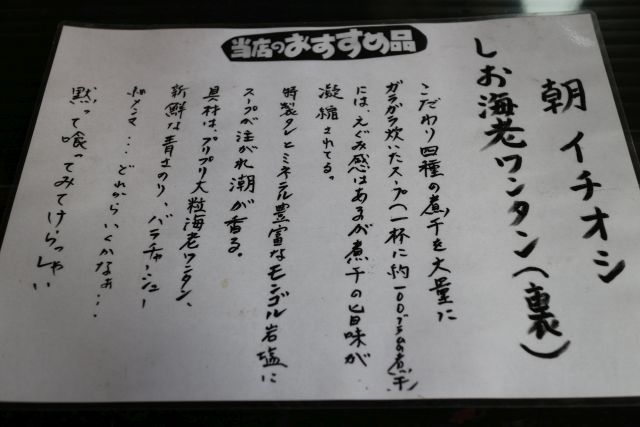 当店のおすすめ品
朝イチオシ
しお海老ワンタン(裏)
こだわり四種の煮干を大量に
ガラガラ炊いたスープへ一杯に約100グラムの煮干
には、えぐみ感はあるが煮干の旨味が
凝縮されてる。
特製タレとミネラル豊富なモンゴル岩塩に
スープが注がれ潮が香る。
具材は、プリプリ大粒海老ワンタン、
新鮮な青さのり、バラチャーシュー
メンマ・・・どれからいくかなぁ・・・
黙って喰ってみてけらっしゃい